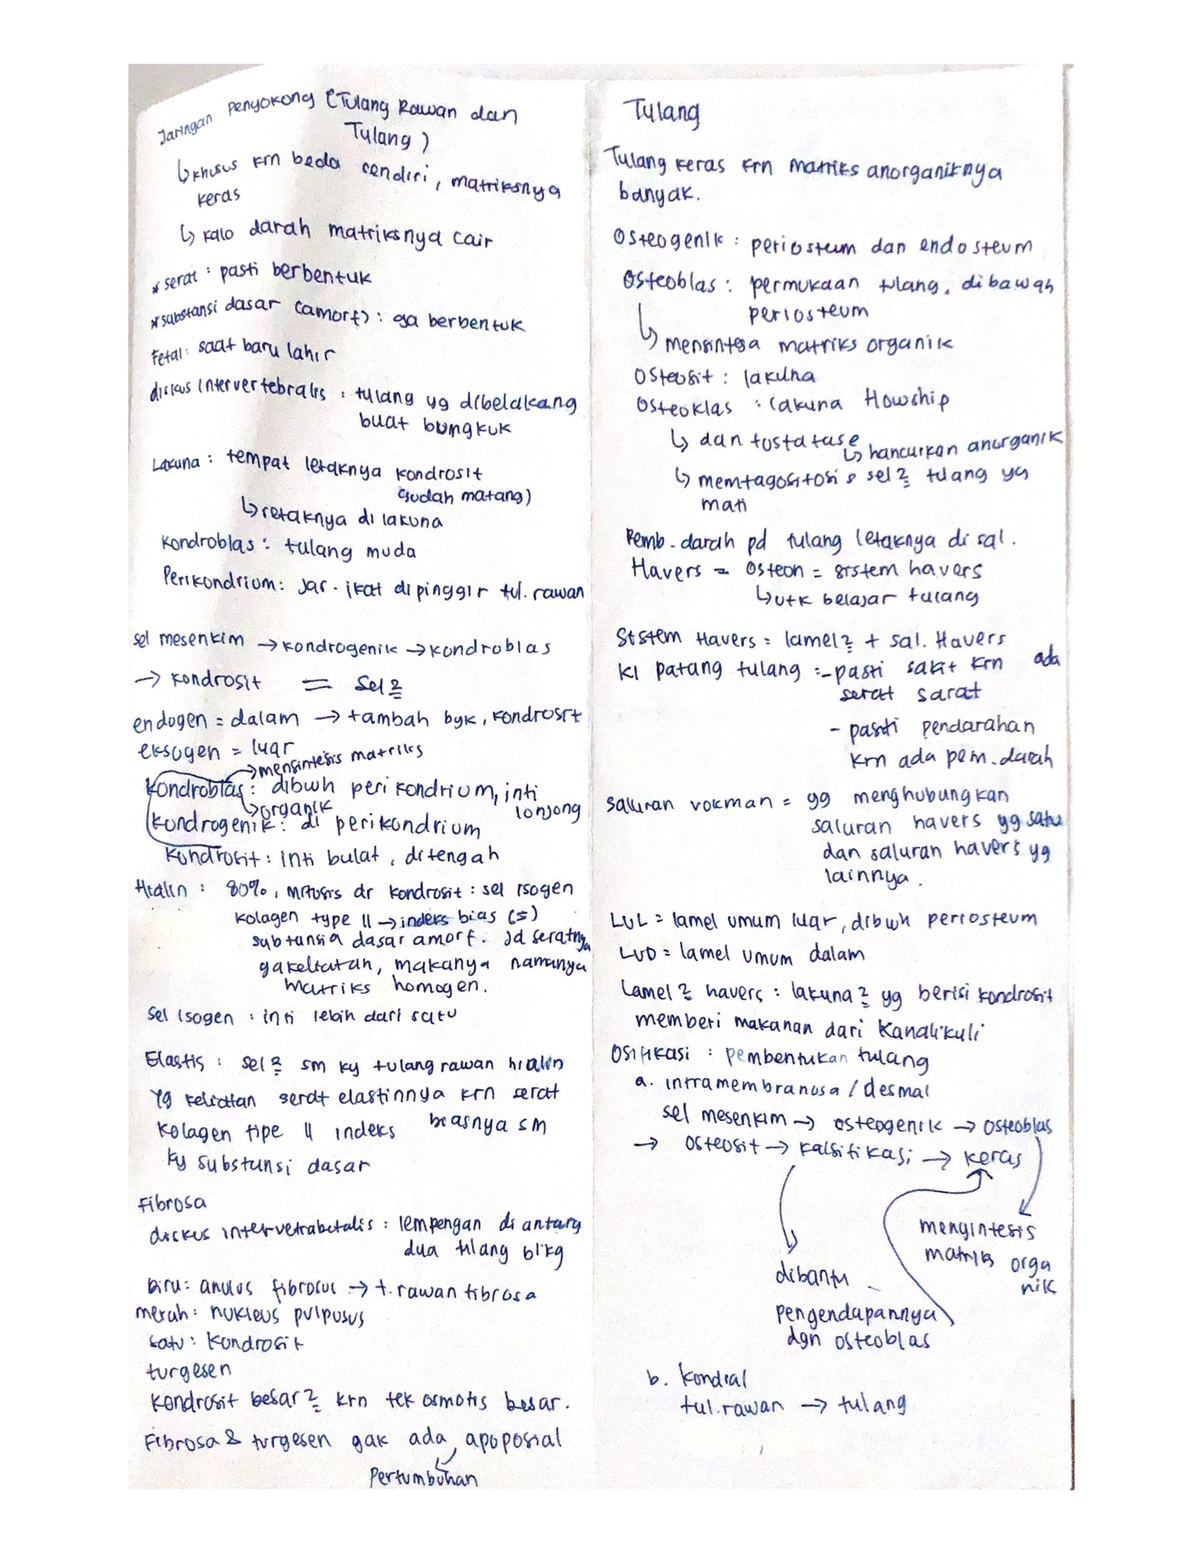 Jaringan Penyokong (Tulang Rawan dan
Tulang)
↳ khusus krn beda sendiri, matriksnya
keras
↳ kalo darah matriksnya cair
* serat : pasti berbentuk
* substansi dasar (amorf) : ga berbentuk
Fetal : saat baru lahir
diskus intervertebralis : tulang yg dibelakang
buat bungkuk
Lakuna : tempat letaknya kondrosit
(sudah matang)
↳ letaknya di lakuna
Kondroblas : tulang muda
Perikondrium : Jar. ikat dipinggir tul. rawan
sel mesenkim → kondrogenik → kondroblas
→ kondrosit = sel2
endogen = dalam → tambah byk, kondrosit
eksogen = luar
→ mensintesis matriks
kondroblas : dibwh perikondrium, inti
↳ organik lonjong
kondrogenik : di perikondrium
kondrosit : inti bulat, ditengah
Hialin : 80%, mitosis dr kondrosit : sel isogen
kolagen type II → indeks bias (=)
subtansia dasar amorf. Jd seratnya
gakeliatan, makanya namanya
matriks homogen.
Sel isogen : inti lebih dari satu
Elastis : sel2 sm ky tulang rawan hialin
yg keliatan serat elastinnya krn serat
kolagen tipe II indeks biasnya sm
ky substansi dasar
Fibrosa
diskus intervetrabetalis : lempengan di antara
dua tulang blkg
Biru : anulus fibrosus → t. rawan fibrosa
merah : nukleus pulpusus
satu : kondrosit
turgesen
kondrosit besar2 krn tek osmotis besar.
Fibrosa & turgesen gak ada apoposial
Pertumbuhan
Tulang
Tulang keras krn matriks anorganiknya
banyak.
Osteogenik : periosteum dan endosteum
Osteoblas : permukaan tulang, dibawah
periosteum
↳ mensintesa matriks organik
Osteosit : lakuna
Osteoklas : lakuna Howship
↳ dan fostatase
↳ hancurkan anorganik
↳ memfagositosis sel2 tulang yg
mati
Pemb. darah pd tulang letaknya di sal.
Havers = Osteon = sistem havers
↳ utk belajar tulang
Sistem Havers = lamel2 + sal. Havers
kl patang tulang : - pasti sakit krn ada
serat sarat
- pasti pendarahan
krn ada pem. darah
saluran volkman = yg menghubungkan
saluran havers yg satu
dan saluran havers yg
lainnya.
LUL = lamel umum luar, dibwh periosteum
LUD = lamel umum dalam
Lamel2 havers : lakuna2 yg berisi kondrosit
memberi makanan dari kanalikuli
Osifikasi : pembentukan tulang
a. intramembranosa / desmal
sel mesenkim → osteogenik → osteoblas
→ osteosit → kalsifikasi → keras
menyintesis
matriks orga
nik
dibantu
pengendapannya
dgn osteoblas
b. kondral
tul. rawan → tulang